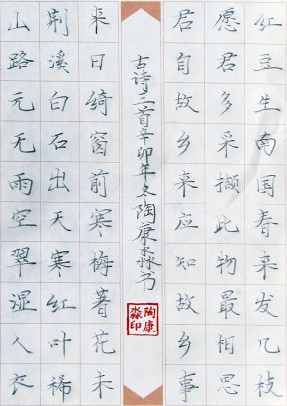 红豆生南国春来发几枝
愿君多采撷此物最相思
君自故乡来应知故乡事
古诗三首辛卯年冬陶康淼书
陶康
淼印
来日绮窗前寒梅著花未
荆溪白石出天寒红叶稀
山路元无雨空翠湿人衣